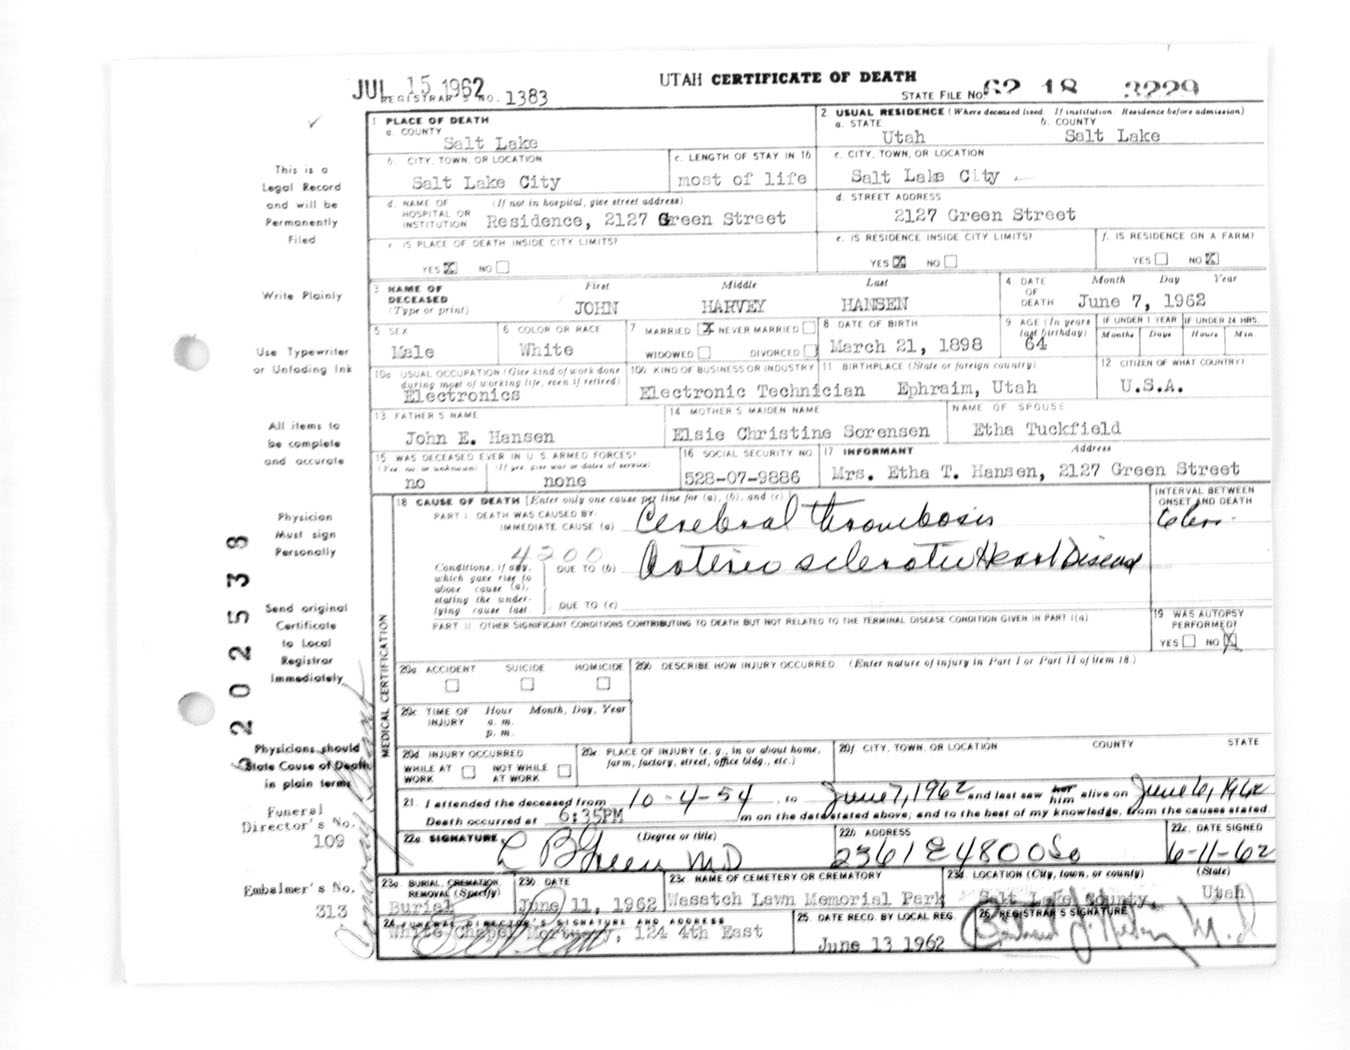 JUL 15 1962
UTAH CERTIFICATE OF DEATH
REGISTRAR'S NO. 1383
STATE FILE NO. 62 18 3229
1 PLACE OF DEATH
a. COUNTY
Salt Lake
2. USUAL RESIDENCE (Where deceased lived. If institution: Residence before admission)
a. STATE b. COUNTY
Utah Salt Lake
b. CITY, TOWN, OR LOCATION
Salt Lake City
c. LENGTH OF STAY IN 1b
most of life
c. CITY, TOWN, OR LOCATION
Salt Lake City
d. NAME OF HOSPITAL OR INSTITUTION (If not in hospital, give street address)
Residence, 2127 Green Street
d. STREET ADDRESS
2127 Green Street
e. IS PLACE OF DEATH INSIDE CITY LIMITS?
YES X NO
e. IS RESIDENCE INSIDE CITY LIMITS?
YES X NO
f. IS RESIDENCE ON A FARM?
YES NO X
3 NAME OF DECEASED (Type or print)
First Middle Last
JOHN HARVEY HANSEN
4 DATE OF DEATH Month Day Year
June 7, 1962
5 SEX
Male
6 COLOR OR RACE
White
7 MARRIED X NEVER MARRIED
WIDOWED DIVORCED
8 DATE OF BIRTH
March 21, 1898
9 AGE (In years last birthday)
64
IF UNDER 1 YEAR IF UNDER 24 HRS.
Months Days Hours Min.
10a USUAL OCCUPATION (Give kind of work done during most of working life, even if retired)
Electronics
10b KIND OF BUSINESS OR INDUSTRY
Electronic Technician
11 BIRTHPLACE (State or foreign country)
Ephraim, Utah
12 CITIZEN OF WHAT COUNTRY?
U.S.A.
13 FATHER'S NAME
John E. Hansen
14 MOTHER'S MAIDEN NAME
Elsie Christine Sorensen
NAME OF SPOUSE
Etha Tuckfield
15 WAS DECEASED EVER IN U.S. ARMED FORCES?
(Yes, no, or unknown) (If yes, give war or dates of service)
no none
16 SOCIAL SECURITY NO.
528-07-9886
17 INFORMANT Address
Mrs. Etha T. Hansen, 2127 Green Street
18 CAUSE OF DEATH [Enter only one cause per line for (a), (b), and (c)]
INTERVAL BETWEEN ONSET AND DEATH
PART I. DEATH WAS CAUSED BY:
IMMEDIATE CAUSE (a) Cerebral thrombosis
4200
Conditions, if any, which gave rise to above cause (a), stating the underlying cause last
DUE TO (b) Arterio sclerotic Heart Disease
DUE TO (c)
PART II. OTHER SIGNIFICANT CONDITIONS CONTRIBUTING TO DEATH BUT NOT RELATED TO THE TERMINAL DISEASE CONDITION GIVEN IN PART I(a)
19 WAS AUTOPSY PERFORMED?
YES NO X
MEDICAL CERTIFICATION
20a ACCIDENT SUICIDE HOMICIDE
20b DESCRIBE HOW INJURY OCCURRED (Enter nature of injury in Part I or Part II of item 18.)
20c TIME OF INJURY Hour Month, Day, Year
a. m.
p. m.
20d INJURY OCCURRED
WHILE AT WORK NOT WHILE AT WORK
20e PLACE OF INJURY (e. g., in or about home, farm, factory, street, office bldg., etc.)
20f CITY, TOWN, OR LOCATION COUNTY STATE
21. I attended the deceased from 10-4-54, to June 7, 1962 and last saw her him alive on June 6, 1962
Death occurred at 6:35PM m on the date stated above; and to the best of my knowledge, from the causes stated.
22a SIGNATURE (Degree or title)
L B Green M D
22b ADDRESS
2361 E 4800 So
22c. DATE SIGNED
6-11-62
23a. BURIAL, CREMATION, REMOVAL (Specify)
Burial
23b DATE
June 11, 1962
23c NAME OF CEMETERY OR CREMATORY
Wasatch Lawn Memorial Park
23d. LOCATION (City, town, or county) (State)
Salt Lake County, Utah
24 FUNERAL DIRECTOR'S SIGNATURE AND ADDRESS
White Chapel Mortuary, 124 4th East
25 DATE RECD. BY LOCAL REG.
June 13 1962
26. REGISTRAR'S SIGNATURE
This is a
Legal Record
and will be
Permanently
Filed
Write Plainly
Use Typewriter
or Unfading Ink
All items to
be complete
and accurate
Physician
Must sign
Personally
Send original
Certificate
to Local
Registrar
Immediately
Physicians should
State Cause of Death
in plain terms
Funeral
Director's No.
109
Embalmer's No.
313
202538